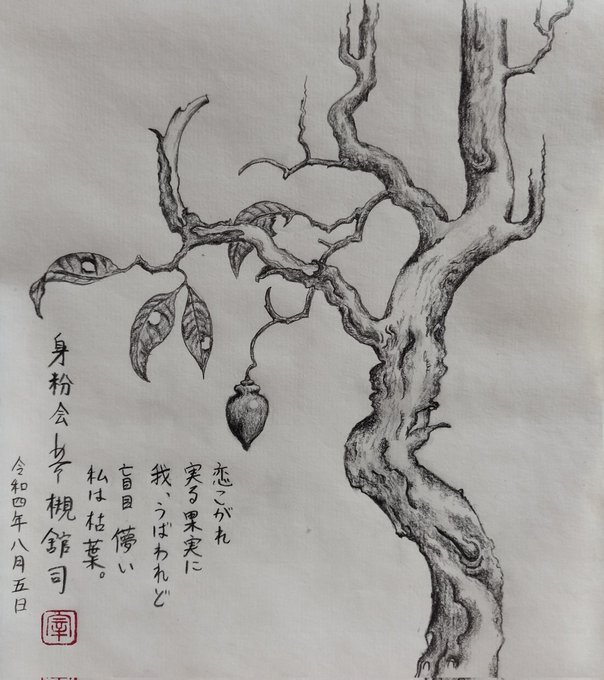 恋こがれ
実る果実に
我、うばわれど
盲目 儚い
私は枯葉。
身粉会 槻舘司
令和四年八月五日